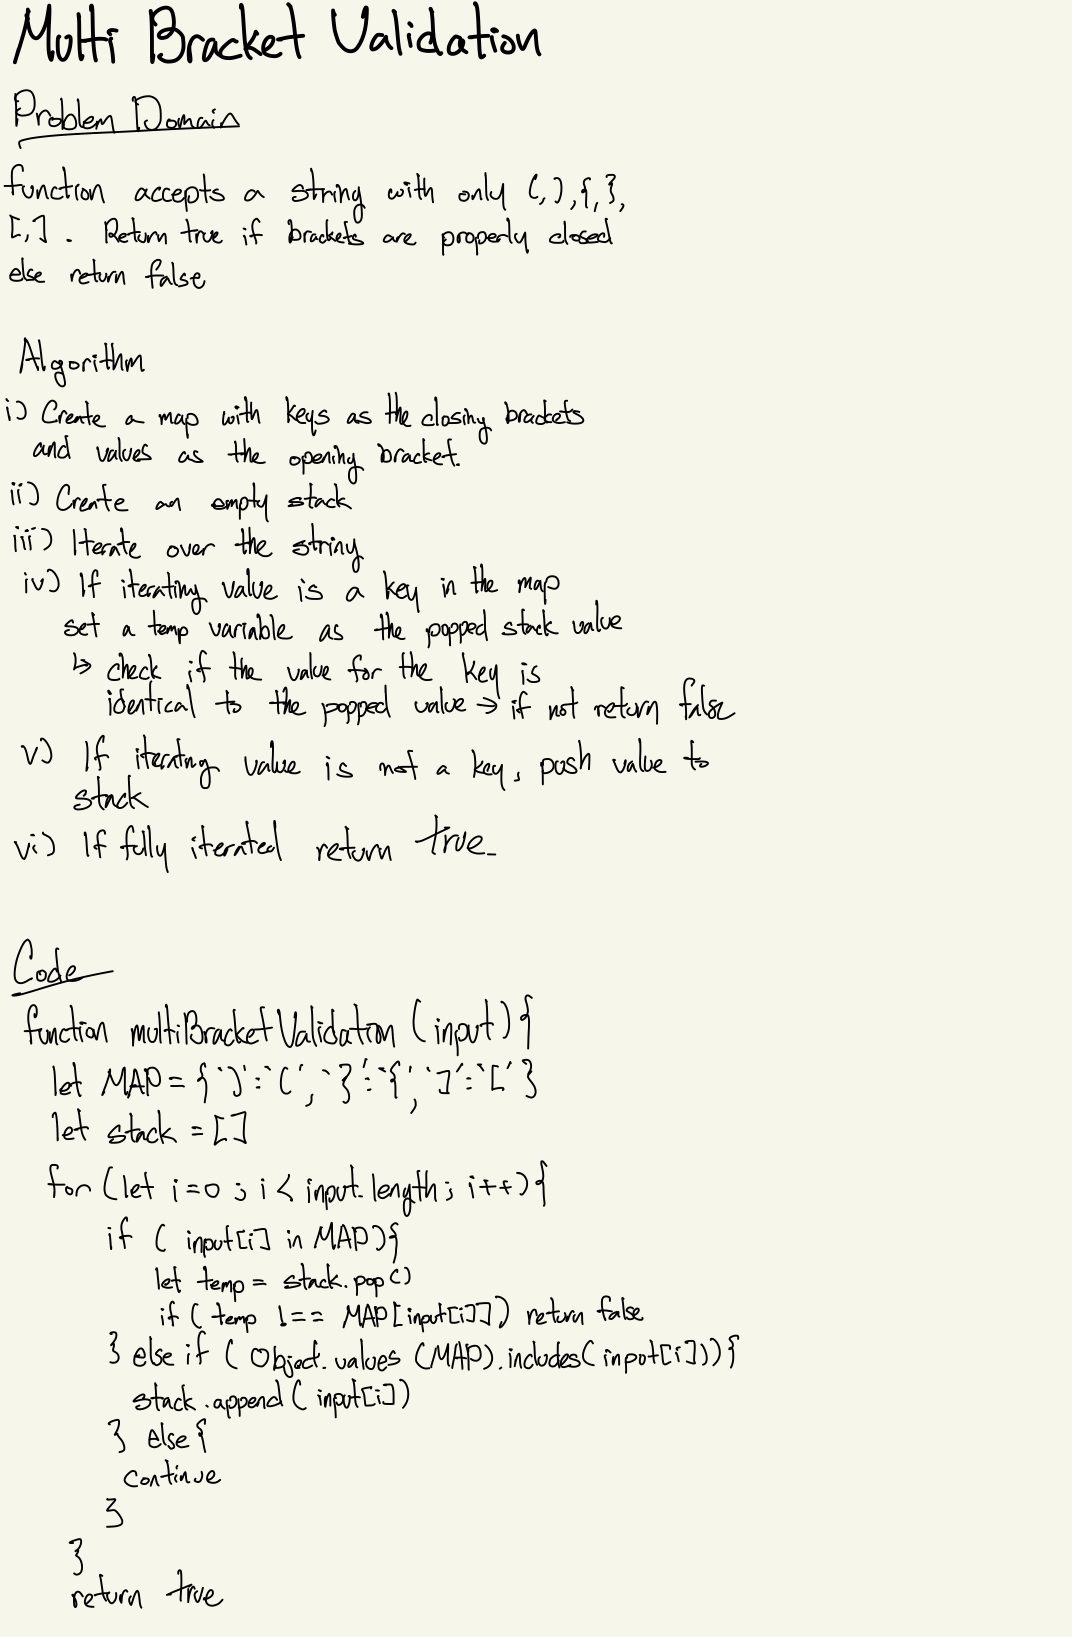 Multi Bracket Validation
Problem Domain
function accepts a string with only (,),{,},
[,]. Return true if brackets are properly closed
else return false
Algorithm
i) Create a map with keys as the closing brackets
and values as the opening bracket.
ii) Create an empty stack
iii) Iterate over the string
iv) If iterating value is a key in the map
set a temp variable as the popped stack value
↳ check if the value for the key is
identical to the popped value → if not return false
v) If iterating value is not a key, push value to
stack
vi) If fully iterated return true.
Code
function multiBracketValidation (input){
let MAP = {')':'(', '}':'{', ']':'['}
let stack = []
for (let i=0; i < input.length; i++){
if ( input[i] in MAP){
let temp = stack.pop()
if ( temp !== MAP[input[i]]) return false
} else if ( Object.values (MAP).includes( input[i])){
stack.append( input[i])
} else {
continue
}
}
return true